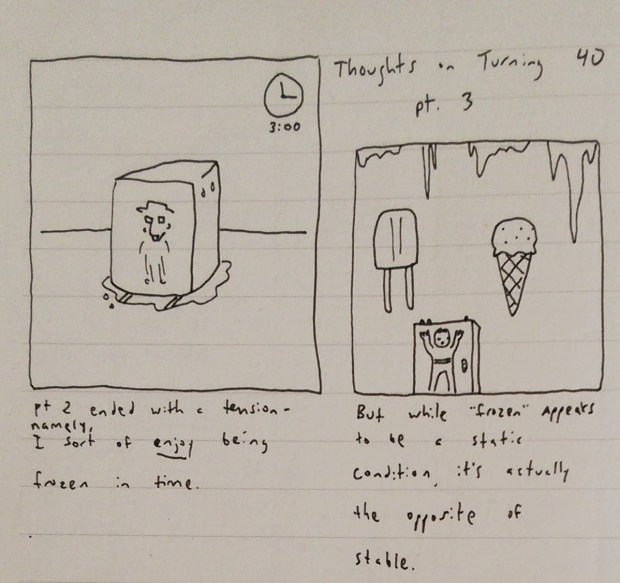 Thoughts on Turning 40
pt. 3
3:00
pt 2 ended with a tension-
namely,
I sort of enjoy being
frozen in time.
But while "frozen" appears
to be a static
condition, it's actually
the opposite of
stable.